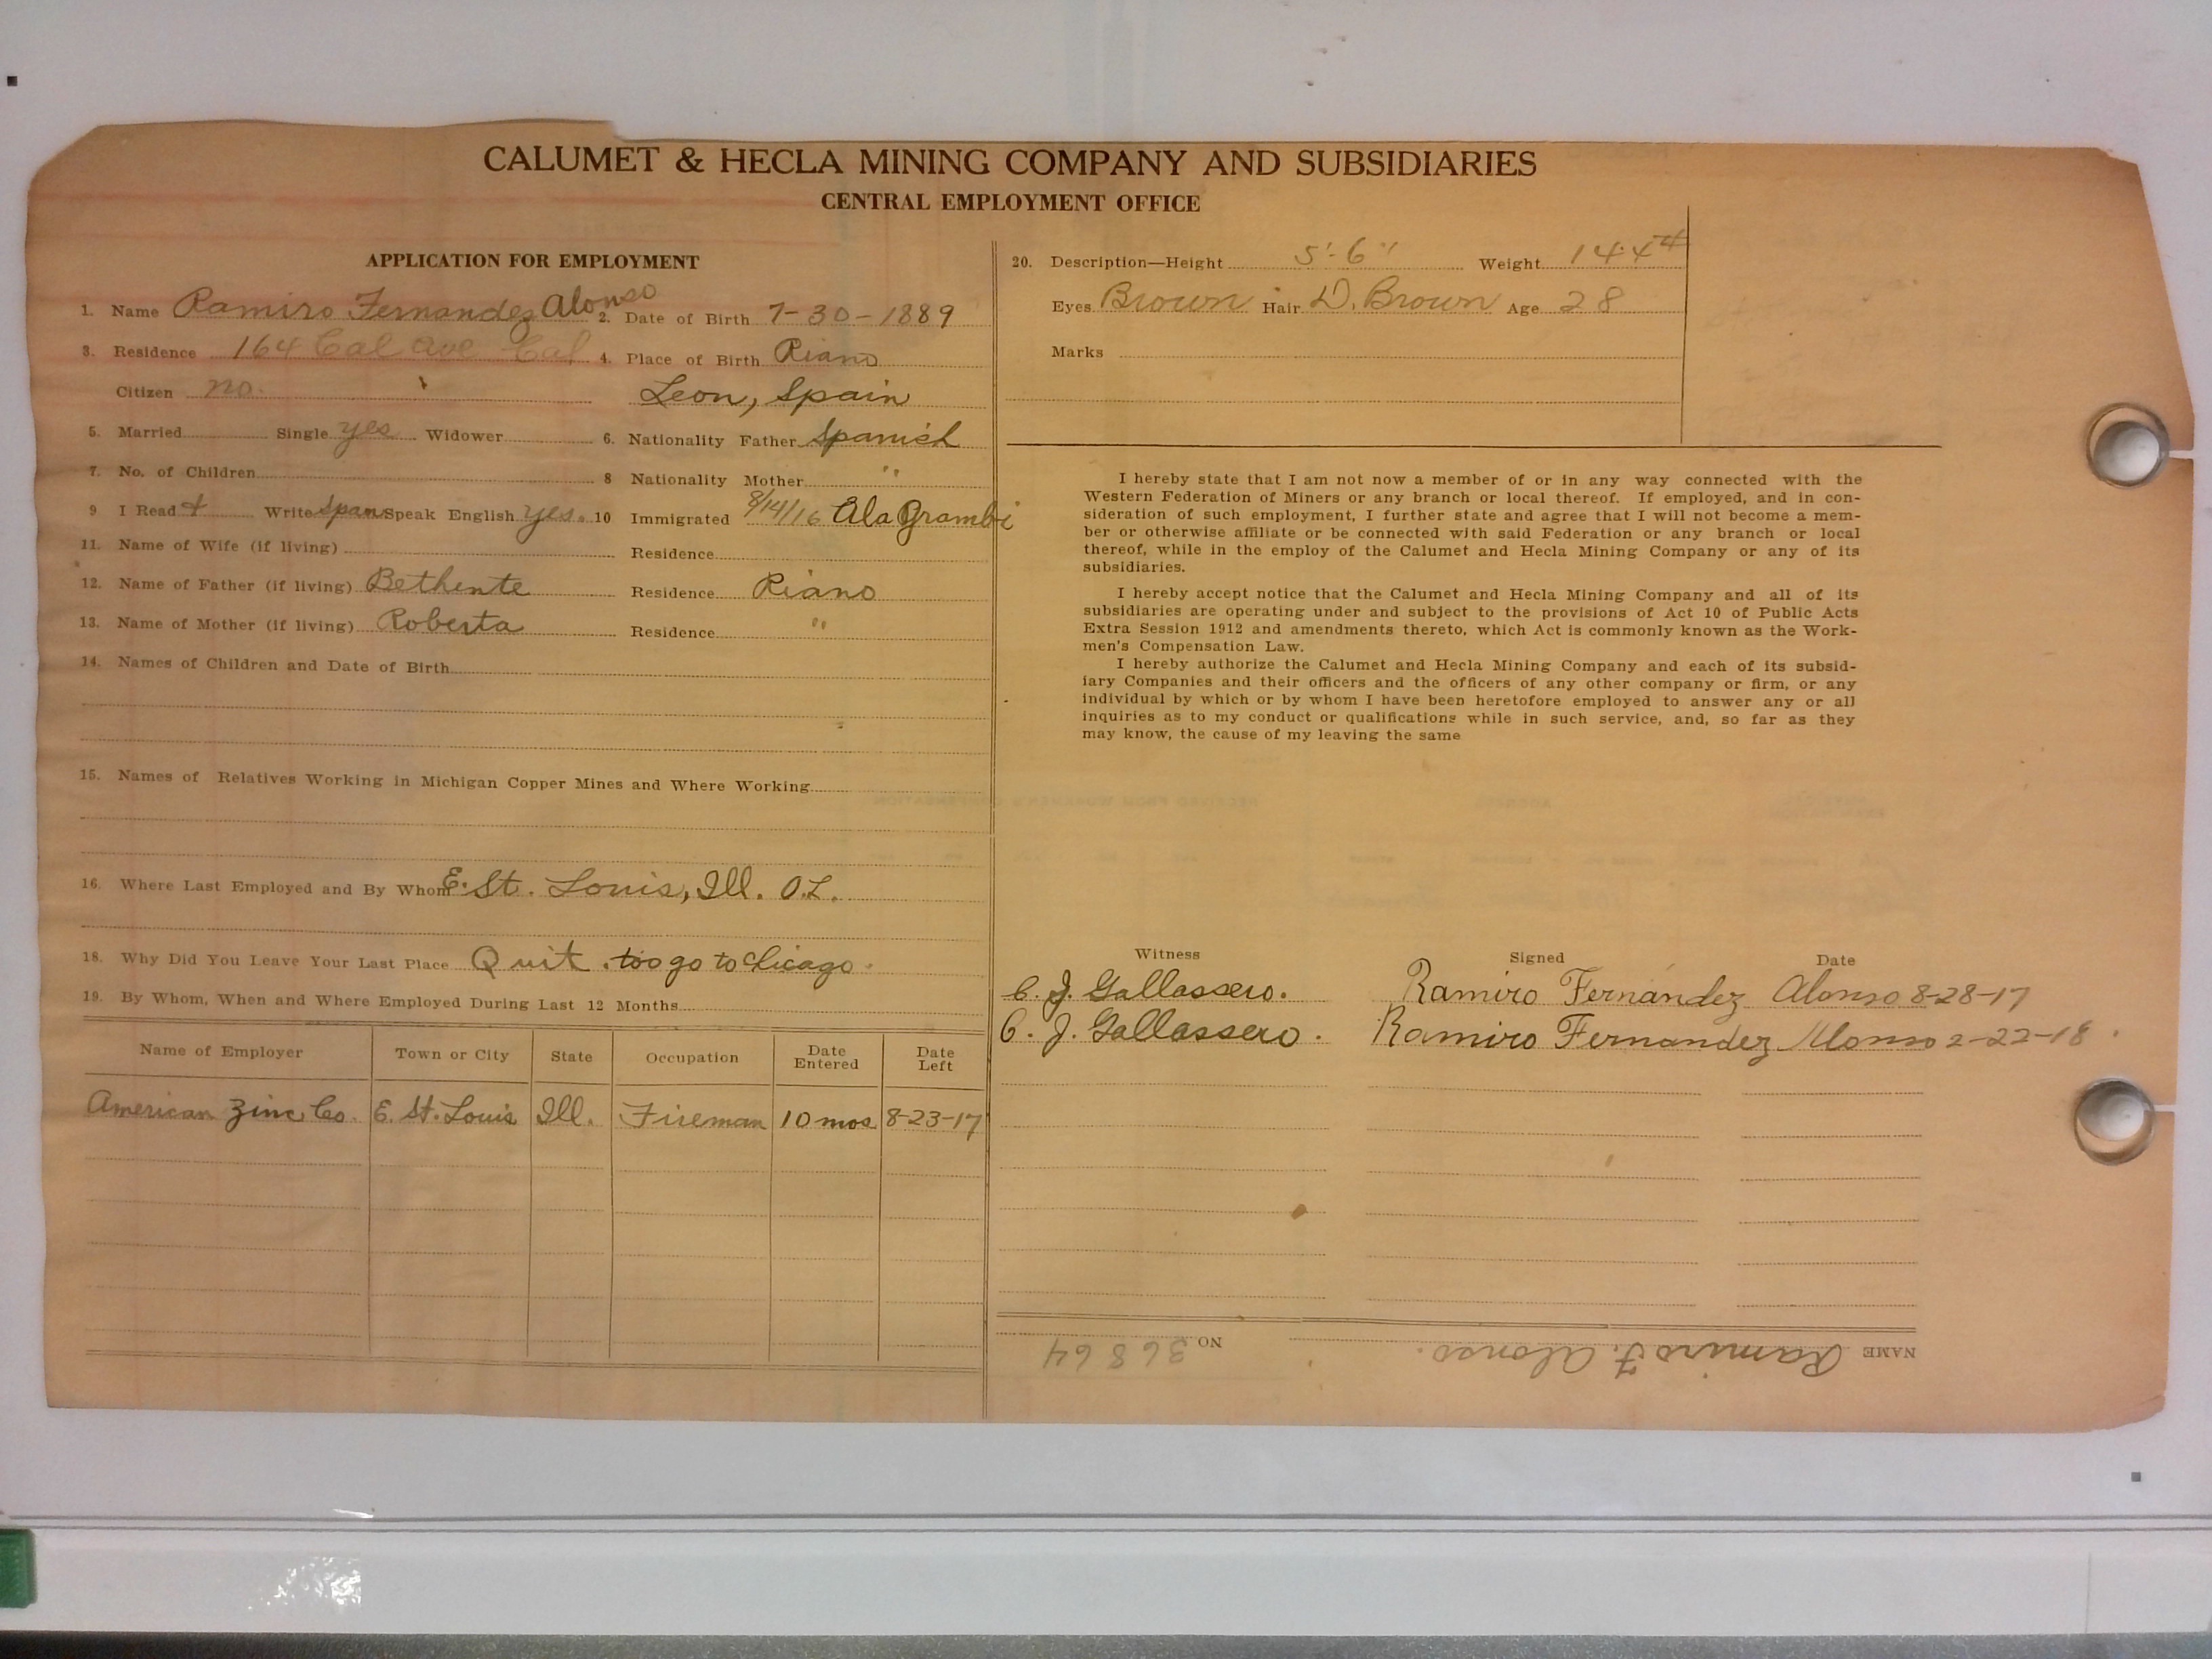 CALUMET & HECLA MINING COMPANY AND SUBSIDIARIES
CENTRAL EMPLOYMENT OFFICE
APPLICATION FOR EMPLOYMENT
1. Name Ramiro Fernandez Alonso 2. Date of Birth 7-30-1889
3. Residence 164 Cal Ave Cal 4. Place of Birth Riano
Citizen no. Leon, Spain
5. Married Single yes Widower 6. Nationality Father Spanish
7. No. of Children 8 Nationality Mother "
9 I Read + Write Span Speak English yes. 10 Immigrated 8/14/16
11. Name of Wife (if living) Residence
12. Name of Father (if living) Bethente Residence Riano
13. Name of Mother (if living) Roberta Residence "
14. Names of Children and Date of Birth
15. Names of Relatives Working in Michigan Copper Mines and Where Working
16. Where Last Employed and By Whom E. St. Louis, Ill. O.L.
18. Why Did You Leave Your Last Place Quit. too go to Chicago.
19. By Whom, When and Where Employed During Last 12 Months
Name of Employer Town or City State Occupation Date Entered Date Left
American Zinc Co. E. St. Louis Ill. Fireman 10 mos 8-23-17
20. Description—Height 5'-6" Weight 144#
Eyes Brown Hair D. Brown Age 28
Marks
I hereby state that I am not now a member of or in any way connected with the
Western Federation of Miners or any branch or local thereof. If employed, and in con-
sideration of such employment, I further state and agree that I will not become a mem-
ber or otherwise affiliate or be connected with said Federation or any branch or local
thereof, while in the employ of the Calumet and Hecla Mining Company or any of its
subsidiaries.
I hereby accept notice that the Calumet and Hecla Mining Company and all of its
subsidiaries are operating under and subject to the provisions of Act 10 of Public Acts
Extra Session 1912 and amendments thereto, which Act is commonly known as the Work-
men's Compensation Law.
I hereby authorize the Calumet and Hecla Mining Company and each of its subsid-
iary Companies and their officers and the officers of any other company or firm, or any
individual by which or by whom I have been heretofore employed to answer any or all
inquiries as to my conduct or qualifications while in such service, and, so far as they
may know, the cause of my leaving the same
Witness Signed Date
C. J. Gallassero. Ramiro Fernández Alonso 8-28-17
C. J. Gallassero. Ramiro Fernandez Alonso 2-22-18.
NAME Ramiro F. Alonso. NO 36864